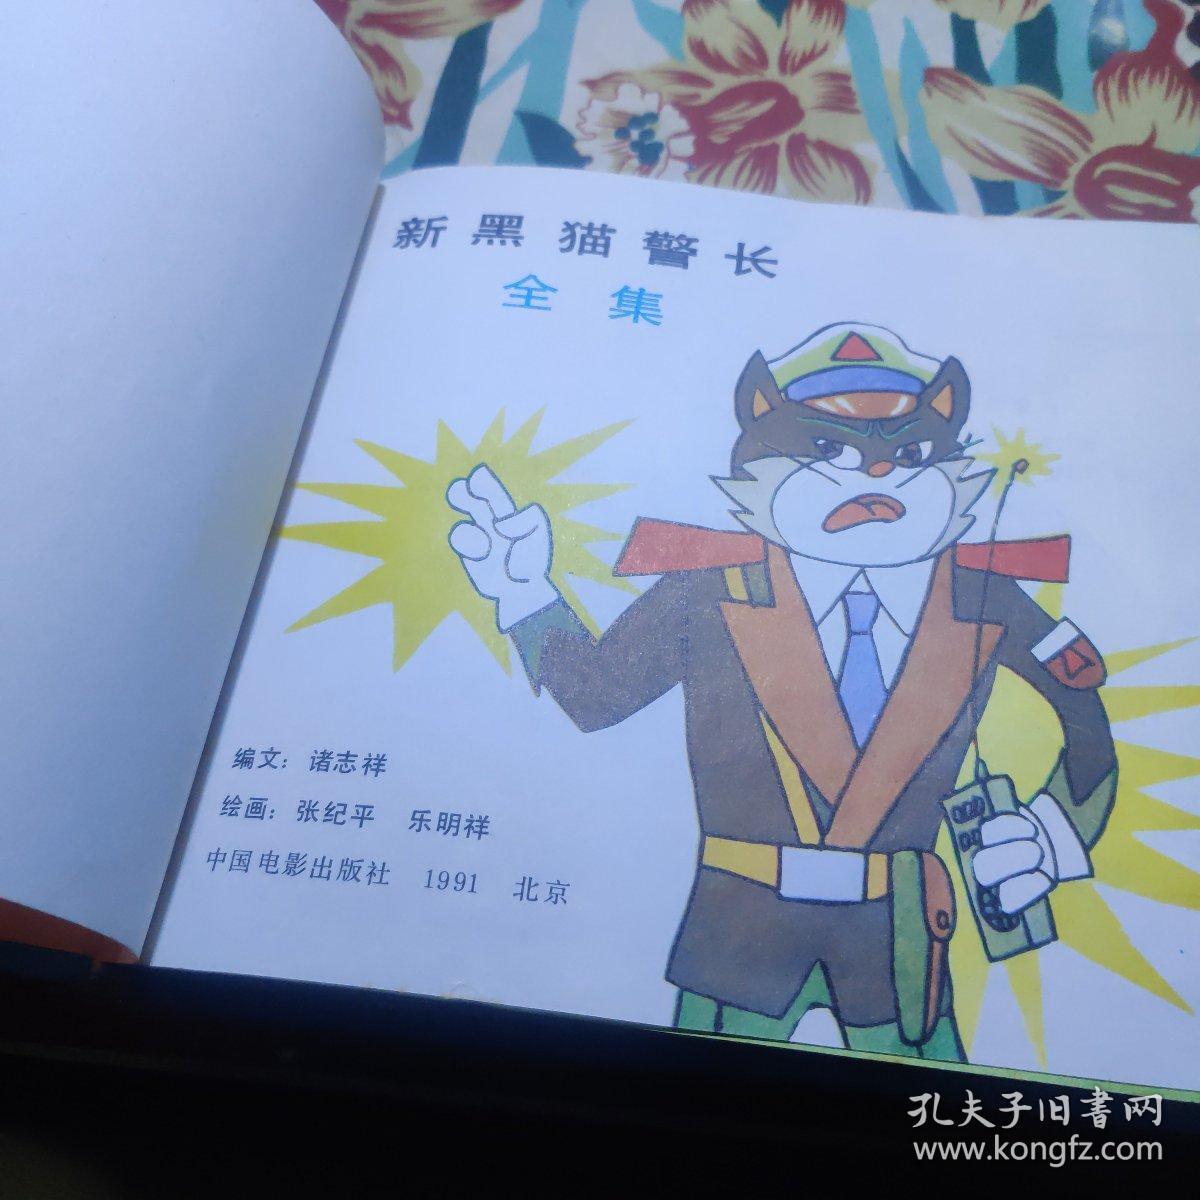 新黑猫警长
全集
编文：诸志祥
绘画：张纪平 乐明祥
中国电影出版社 1991 北京
孔夫子旧書网
www.kongfz.com